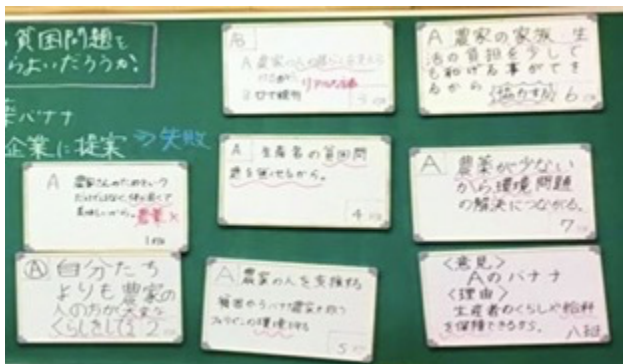 貧困問題を
らよいだろうか?
バナナ
企業に提案 ⇒失敗
A 農家さんのため
だけではなく、体に良くて
美味しいから。農薬×
1班
Ⓐ 自分たち
よりも農家の
人の方が大変な
くらしをしてる 2
AB
A 農家の人の暮らしを支えら
A 生産者の貧困問
題を無くせるから。
4班
A 農家の人を支援する
貧困から バナナ農家を救う
フィリピンの環境を守る
5班
A 農家の家族、生
活の負担を少しで
も和げる事ができ
るから 協力する 6班
A 農薬が少ない
から環境問題
の解決につながる。
7班
<意見>
Aのバナナ
<理由>
生産者のくらしや給料
を保障できるから。 八班